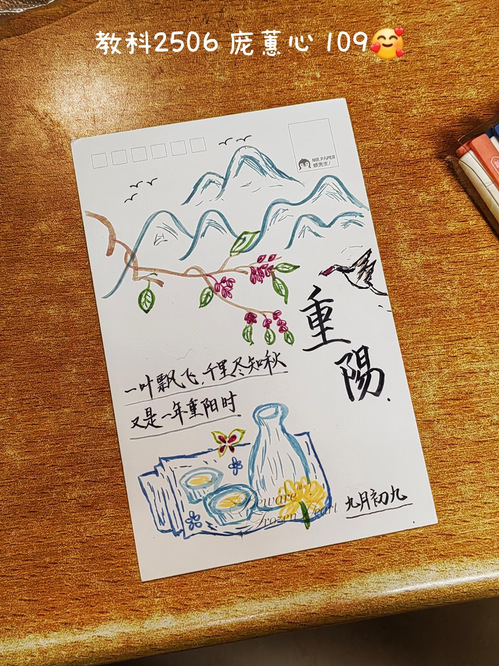 教科2506 庞蕙心 109🥰
MR.PAPER
重陽.
一叶飘飞,千里尽知秋
又是一年重阳时
九月初九